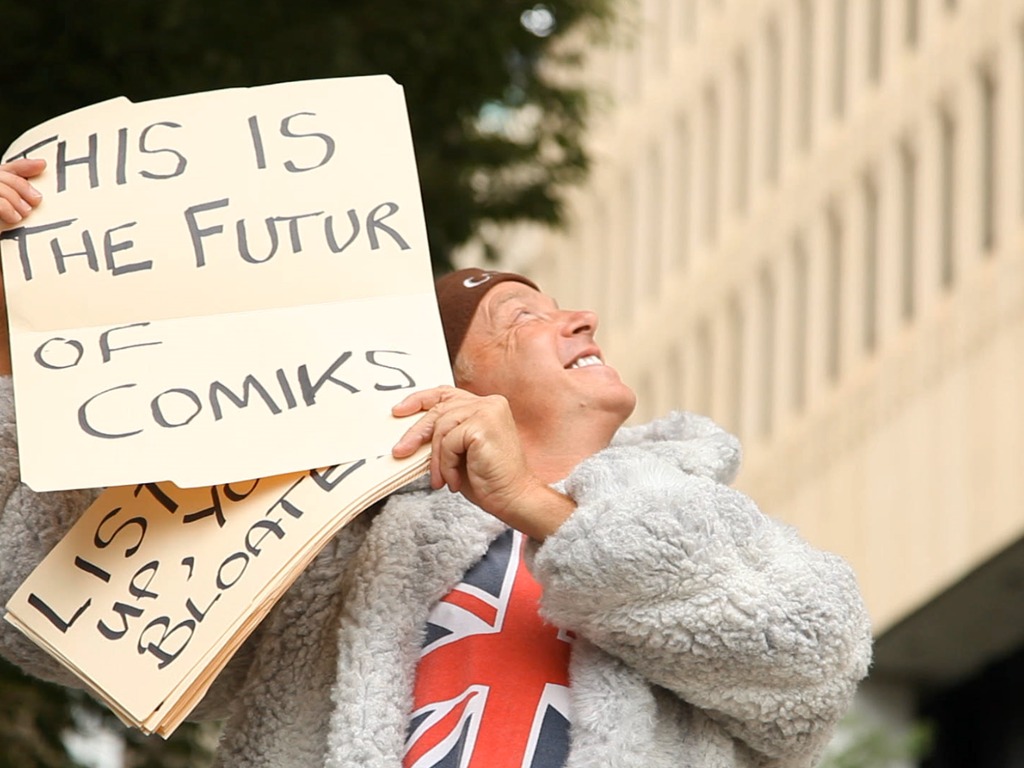 THIS IS
THE FUTUR
OF
COMIKS
LIST
UP, YO
BLOATE